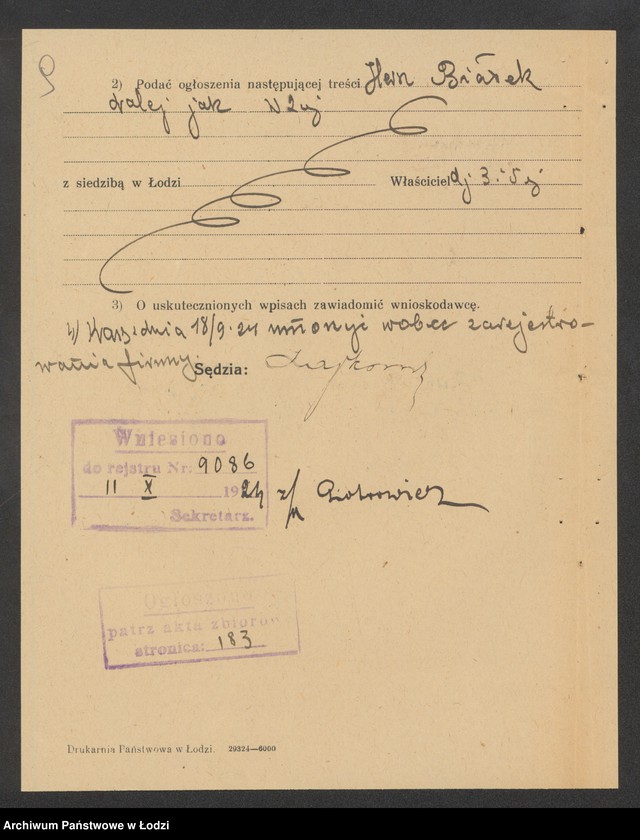 2) Podać ogłoszenia następującej treści
dalej jak
z siedzibą w Łodzi Właściciel
3) O uskutecznionych wpisach zawiadomić wnioskodawcę.
4) dnia 18/9.24 umorzyć wobec zarejestro-
wania firmy.
Sędzia:
Wniesiono
do rejstru Nr: 9086
11 X 1924
Sekretarz. Piotrowicz
Ogłoszono
patrz akta zbioro
stronica: 183
Drukarnia Państwowa w Łodzi. 29324—6000
Archiwum Państwowe w Łodzi